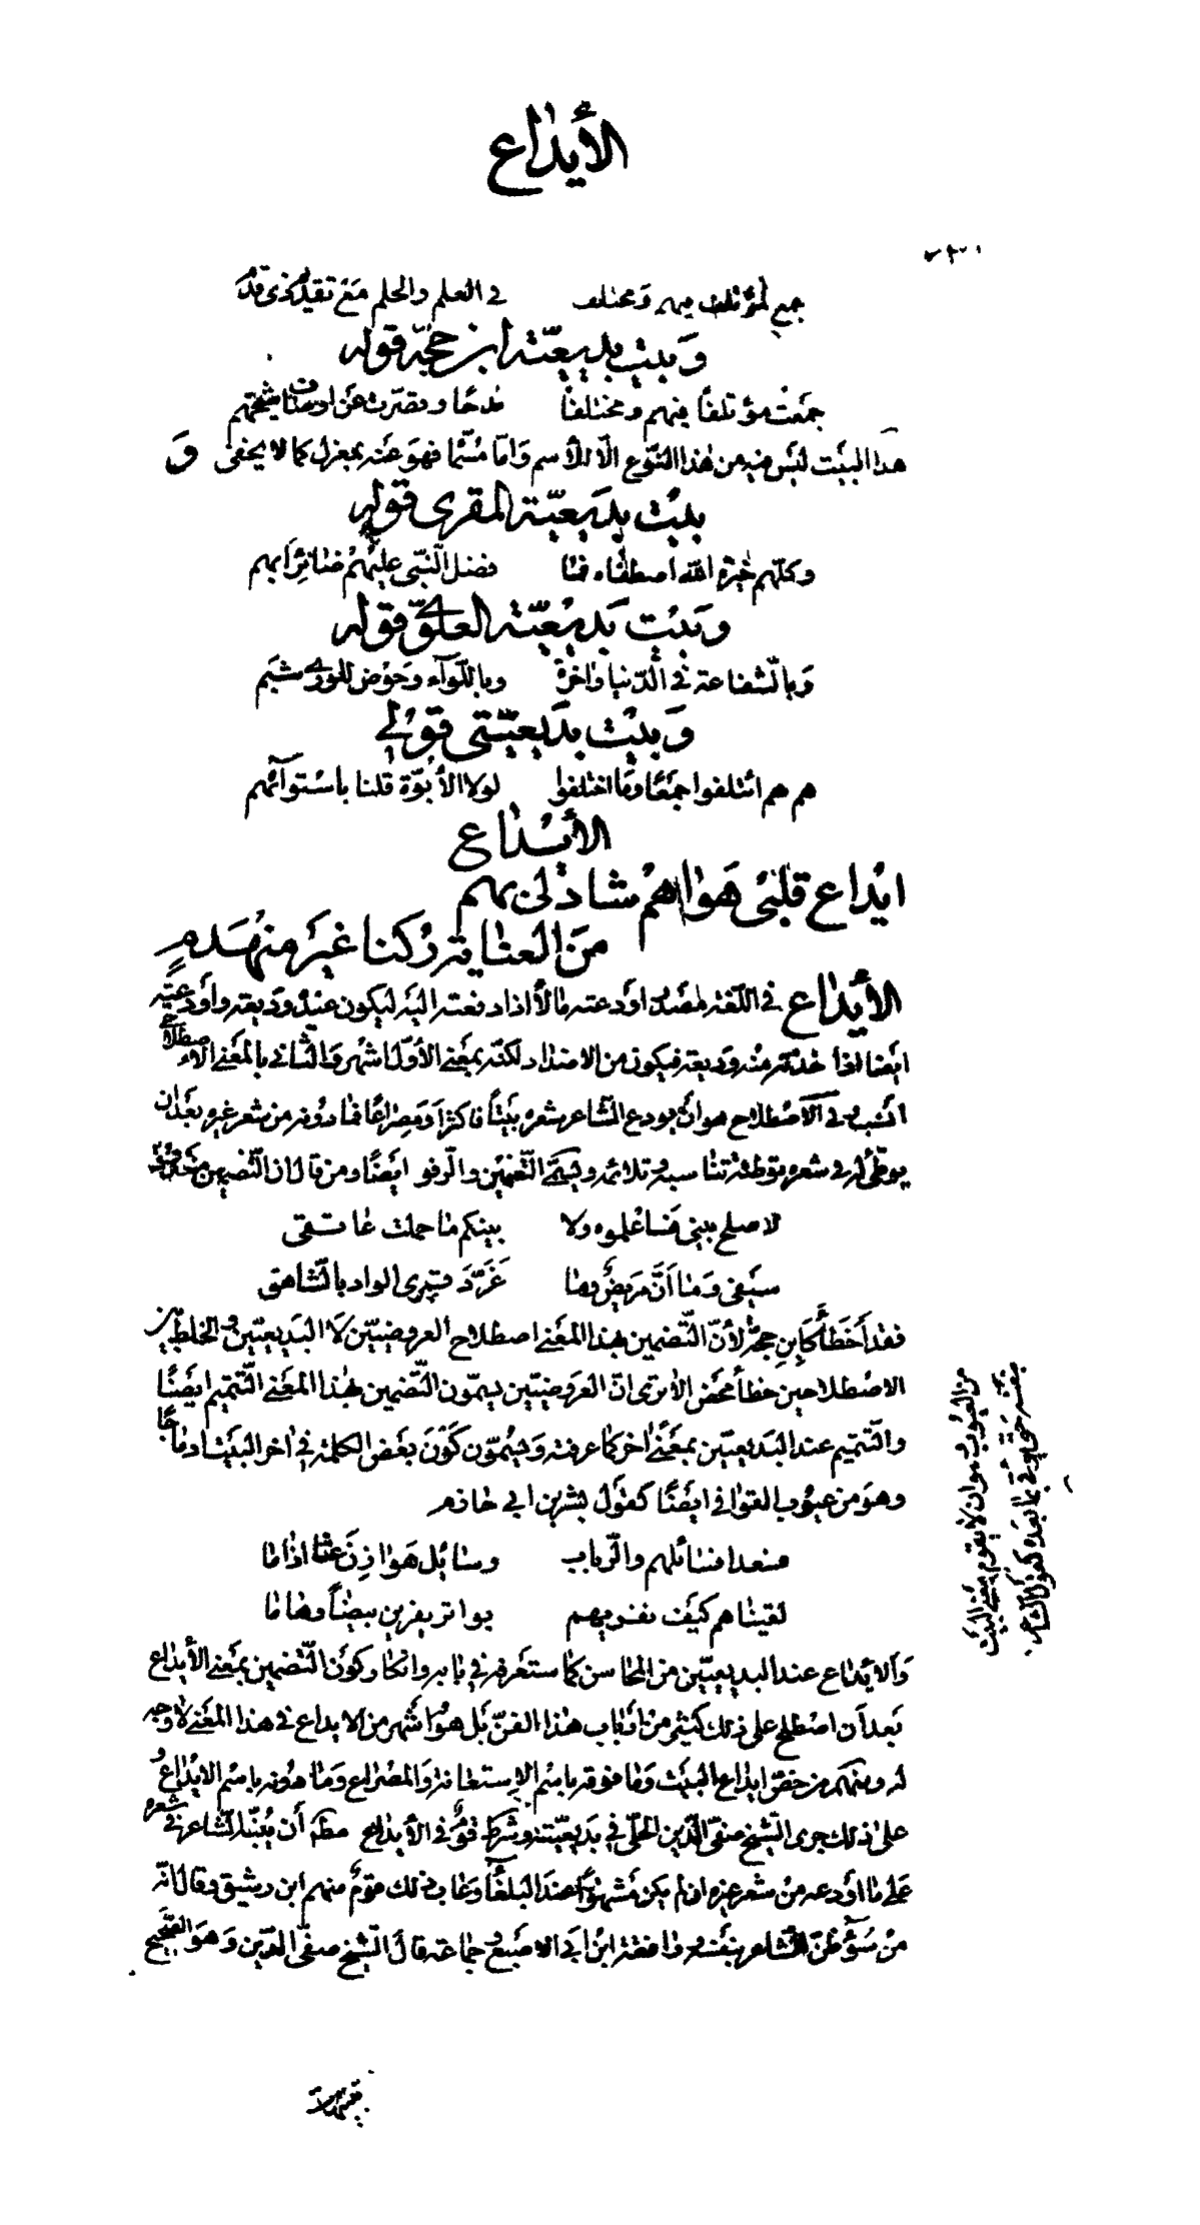 الأيداع
جمع لمؤتلف فيهم ومختلف في العلم والحلم مع تقديم ذى قدم
وبيت بديعيّة ابن حجّة قوله
جمعت مؤتلفًا فيهم ومختلفًا مدحًا وقصّرت عن اوصاف شيخهم
هذا البيت ليس فيه من هذا النّوع الّا الأسم وامّا مسمّا فهو عنه بمعزل كما لا يخفى و
بيت بديعيّة المقرى قوله
وكلّهم خيرة الله اصطفاه فما فضل النّبى عليهم ضائر ابهم
وبيت بديعيّة العلوىّ قوله
وبالشّفاعة في الدّنيا واخرة وباللّوآء وحوض للورى شبم
وبيت بديعيّتى قولي
هم هم ائتلفوا جمعًا وما اختلفوا لولا الأبوّة قلنا باستوآئهم
الأيداع
ايداع قلبى هواهم شاد لى بهم
من العناية ركنا غير منهدم
الأيداع في اللّغة مصدر اودعته مالاً اذا دفعته اليه ليكون عنده وديعة وأودعته
ايضا اذا اخذته منه وديعة فيكون من الاضداد لكنّه بمعنى الأوّل اشهر والثّانى بالمعنى الاصطلاحى
انسب وفى الأصطلاح هو ان يودع الشّاعر شعره بيتاً فاكثر او مصراعًا فما دونه من شعر غيره بعد ان
يوطّئ له في شعره توطئة تناسبه وتلائمه ويسمّى التّضمين والّرفو ايضًا ومن قال ان التّضمين من
لا صلح بينى فاعلموه ولا بينكم ما حملت عاتقى
سيفى وما أنّ مريض وما غرّد قمرى الواد بالشّاهق
فقد اخطأ كابن حجّة لأنّ التّضمين بهذا المعنى اصطلاح العروضيّين لا البديعيّين والخلط بين
الاصطلاحين خطأ محض الا ترى انّ العروضيّين يسمّون التّضمين بهذا المعنى التّتميم ايضًا
والتّتميم عند البديعيّين بمعنى اخر كما عرفته ويسمّون كون بعض الكلمة في اخر البيت ادماجًا
وهو من عيوب القوافى ايضًا كقول بشر بن ابى خازم
فسعدا فسائلهم والّرباب وسائل هوازن عنّا اذا ما
لقيناهم كيف نفريهم بواتر يفرين بيضاً وهاما
والايداع عند البديعيّين من المحاسن كما ستعرفه في بابه وانكار كون التّضمين بمعنى الأيداع
بعد أن اصطلح على ذلك كثير من ارباب هذا الفنّ بل هو اشهر من الايداع فى هذا المعنى لا وجه
له ومنهم من خصّ ايداع البيت وما فوقه باسم الإستعانة والمصراع وما دونه باسم الايداع و
على ذلك جرى الشّيخ صفىّ الدّين الحلّى في بديعيّته وشرط قوم فى الأيداع أن ينبّه الشّاعر فى شعره
على ما اودعه من شعر غيره ان لم يكن مشهورًا عند البلغآ وعاب ذلك قوم منهم ابن رشيق وقال انّه
من سوء ظنّ الشّاعر بنفسه ووافقه ابن ابى الاصبع و جماعة قال الشّيخ صفىّ الدّين وهو الصّحيح
من العيوب هو ان لا يقوم معنى البيت
بنفسه حتّى يؤتى بما بعده كقول الشاعر